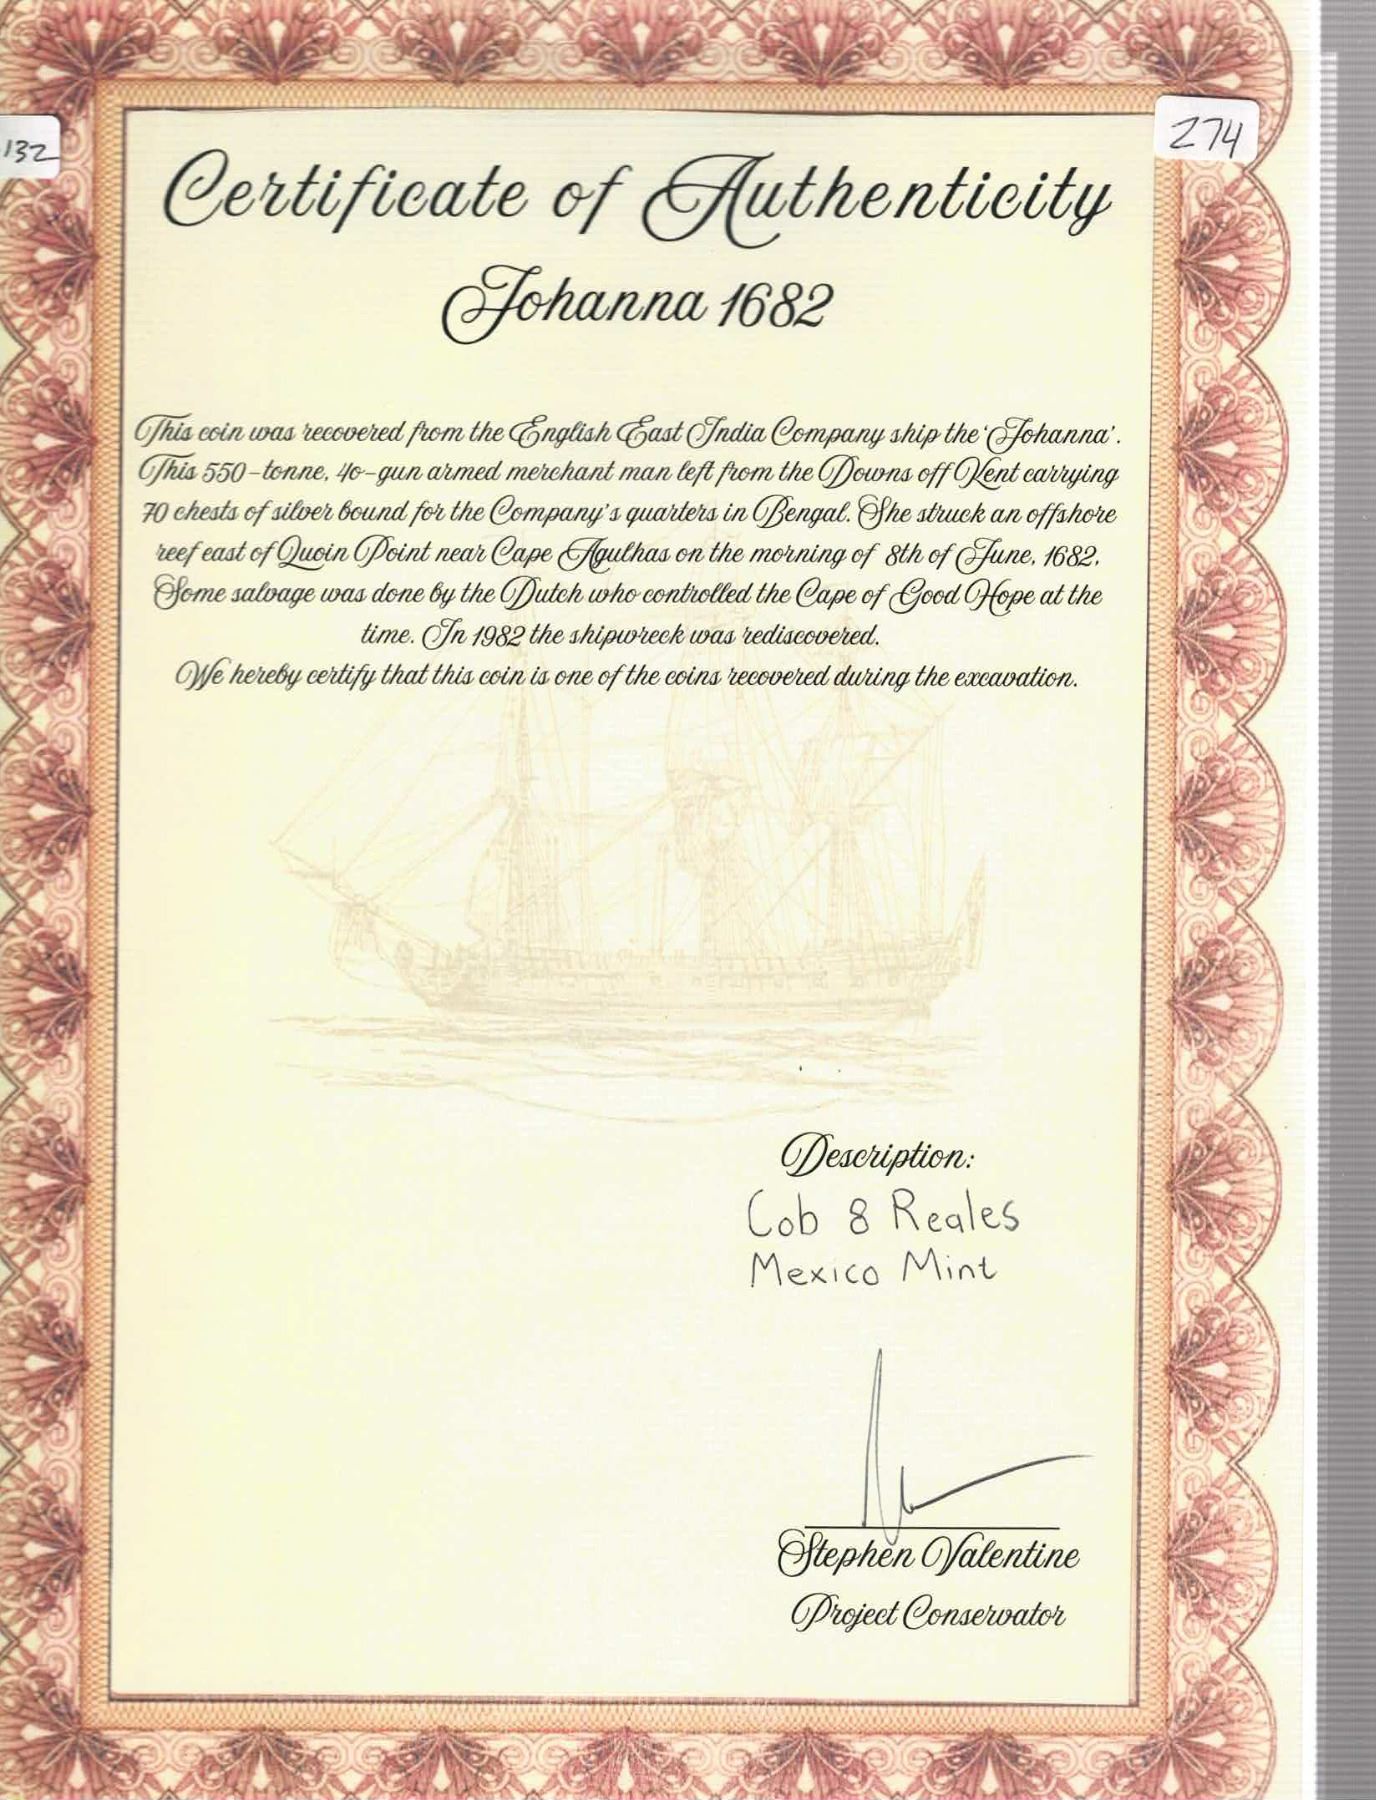 132
274
Certificate of Authenticity
Johanna 1682
This coin was recovered from the English East India Company ship the 'Johanna'.
This 550-tonne, 40-gun armed merchant man left from the Downs off Kent carrying
70 chests of silver bound for the Company's quarters in Bengal. She struck an offshore
reef east of Quoin Point near Cape Agulhas on the morning of 8th of June, 1682.
Some salvage was done by the Dutch who controlled the Cape of Good Hope at the
time. In 1982 the shipwreck was rediscovered.
We hereby certify that this coin is one of the coins recovered during the excavation.
Description:
Cob 8 Reales
Mexico Mint
Stephen Valentine
Project Conservator